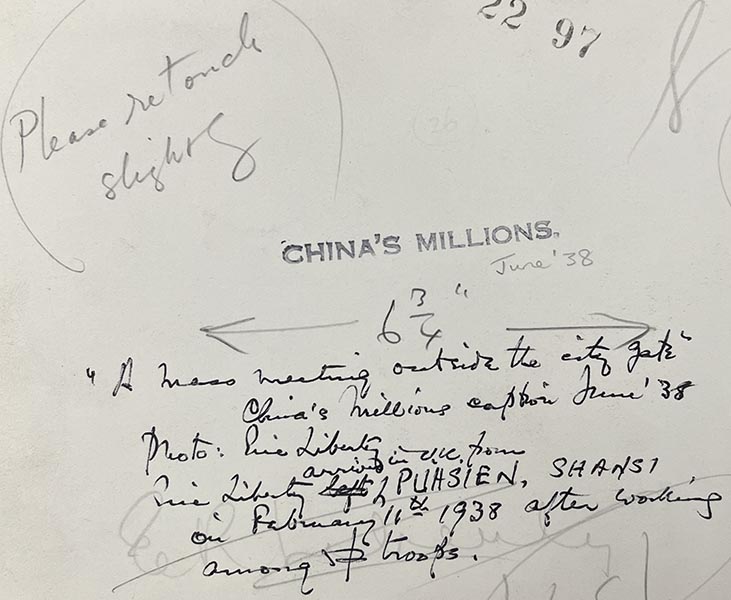 22 97
Please retouch
slightly
8
(26)
CHINA'S MILLIONS.
June '38
6 3/4"
"A mass meeting outside the city gate"
China's Millions caption June '38
Photo: Eric Liberty
arrived in U.K. from
Eric Liberty left PUHSIEN, SHANSI
on February 11th 1938 after working
among troops.